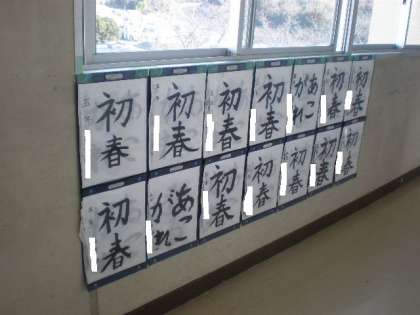 初春
初春
初春
初春
あこ
がれ
初春
初春
初春
あこ
がれ
初春
初春
初春
初春
初春